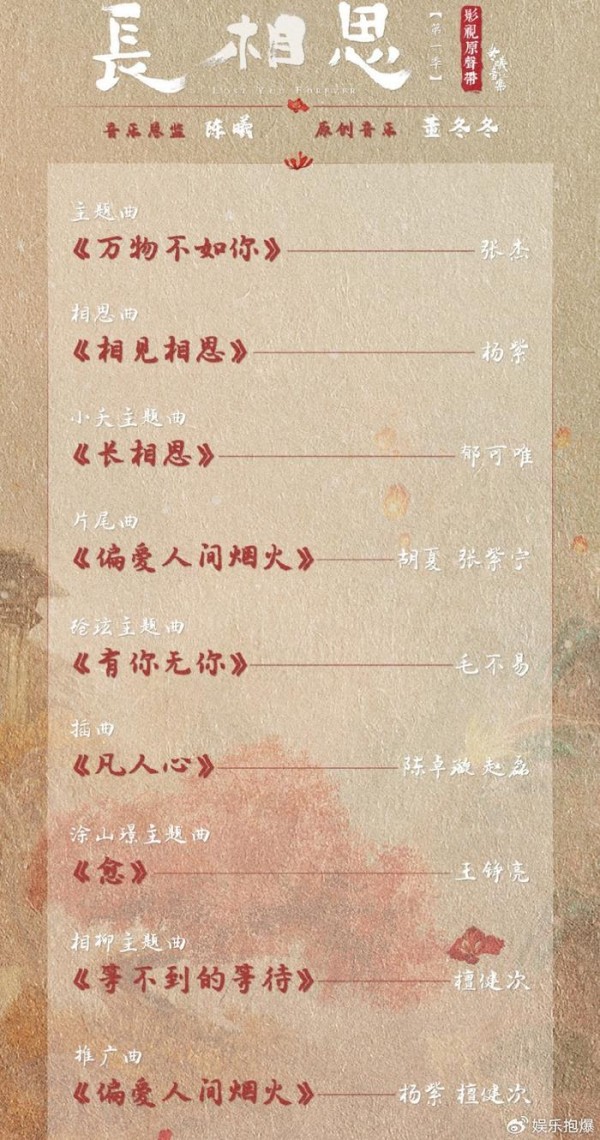 長相思
【第一季】
影視原聲帶
LOST YOU FOREVER
音乐总监 陈曦 原创音乐 董冬冬
主题曲
《万物不如你》 张杰
相思曲
《相见相思》 杨紫
小夭主题曲
《长相思》 郁可唯
片尾曲
《偏爱人间烟火》 胡夏 张紫宁
玱玹主题曲
《有你无你》 毛不易
插曲
《凡人心》 陈卓璇 赵磊
涂山璟主题曲
《愈》 王铮亮
相柳主题曲
《等不到的等待》 檀健次
推广曲
《偏爱人间烟火》 杨紫 檀健次
娱乐抱爆